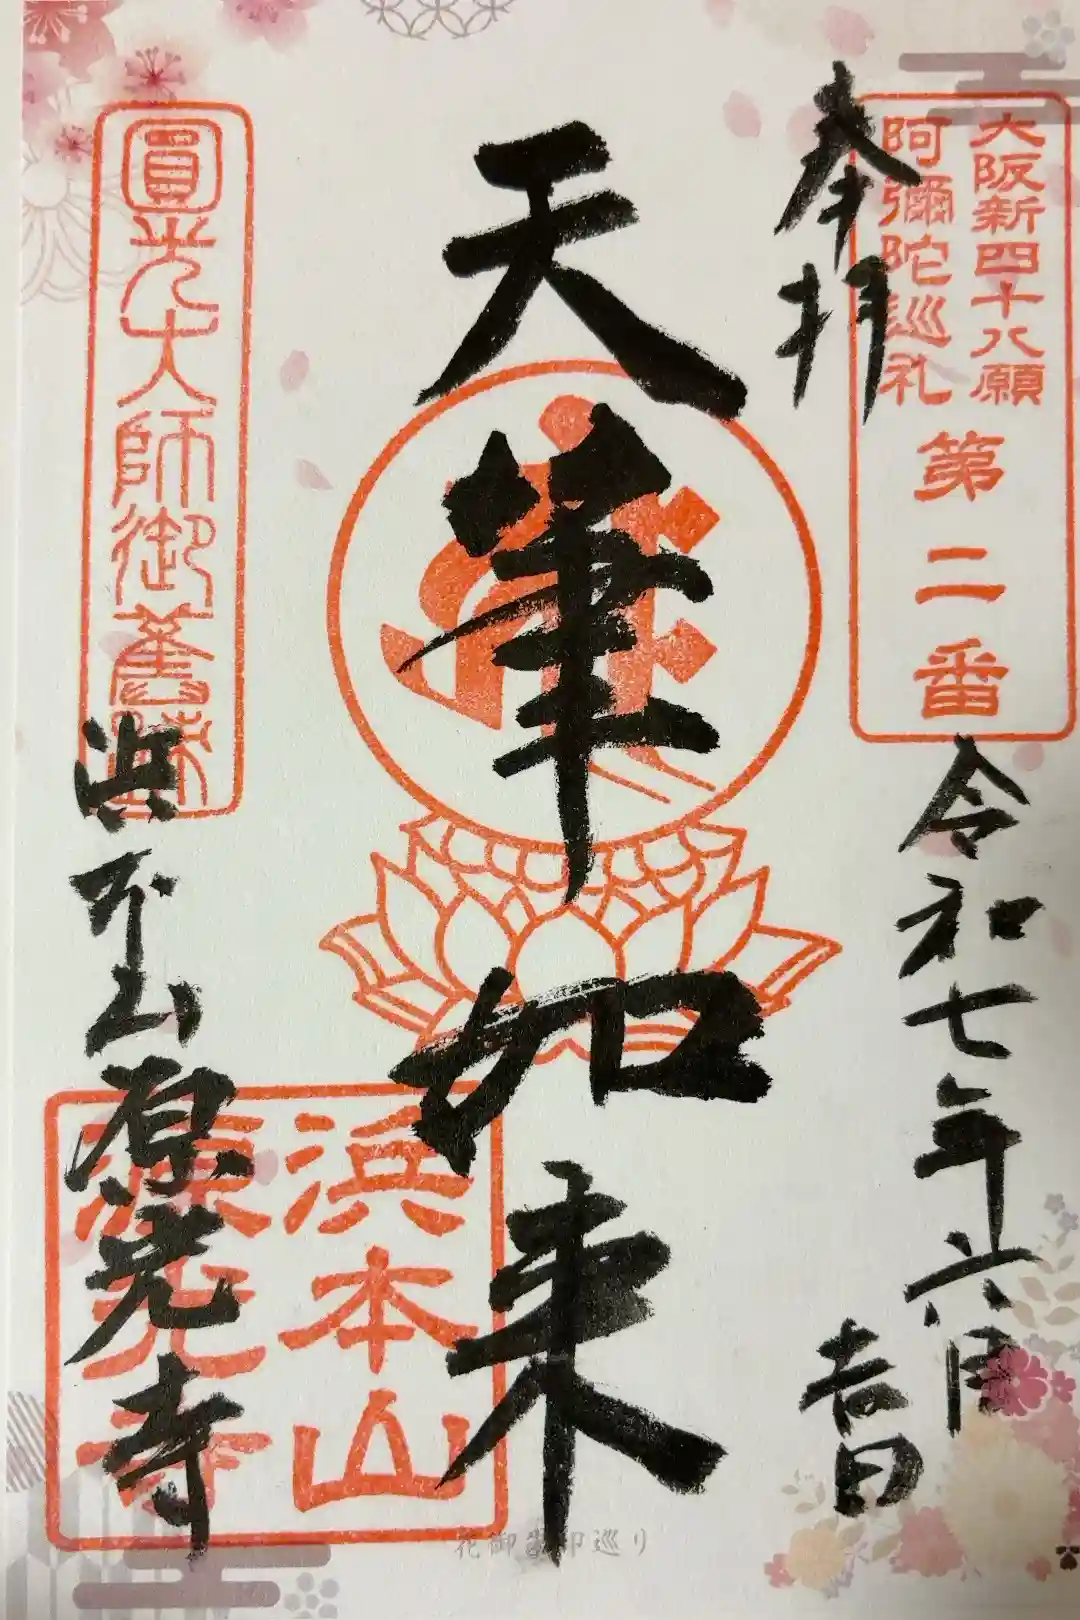 大阪新四十八願
阿彌陀巡礼
第二番
奉拝
令和七年六月
吉日
天筆如来
圓光大師御舊跡
浜本山源光寺
浜本山
源光寺
花御朱印巡り